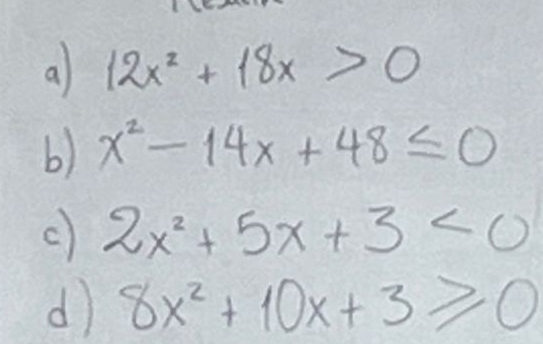 a) 12x² + 18x > 0
b) x² - 14x + 48 ≤ 0
c) 2x² + 5x + 3 < 0
d) 8x² + 10x + 3 ≥ 0